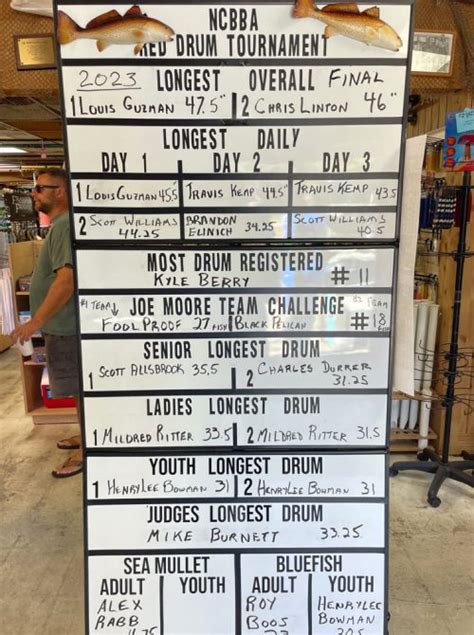 NCBBA
RED DRUM TOURNAMENT
2023 LONGEST OVERALL FINAL
1 LOUIS GUZMAN 47.5" 2 CHRIS LINTON 46"
LONGEST DAILY
DAY 1 DAY 2 DAY 3
1 LOUIS GUZMAN 45.5 TRAVIS KEMP 44.5" TRAVIS KEMP 43.5
2 SCOTT WILLIAMS 44.25 BRANDON ELINICH 34.25 SCOTT WILLIAMS 40.5
MOST DRUM REGISTERED
KYLE BERRY # 11
#1 TEAM JOE MOORE TEAM CHALLENGE #2 TEAM
FOOL PROOF 27 FISH BLACK PELICAN #18
SENIOR LONGEST DRUM
1 SCOTT ALLSBROOK 35.5 2 CHARLES DURRER 31.25
LADIES LONGEST DRUM
1 MILDRED RITTER 33.5 2 MILDRED RITTER 31.5
YOUTH LONGEST DRUM
1 HENRYLEE BOWMAN 31 2 HENRYLEE BOWMAN 31
JUDGES LONGEST DRUM
MIKE BURNETT 33.25
SEA MULLET BLUEFISH
ADULT YOUTH ADULT YOUTH
ALEX ROY HENRYLEE
RABB BOOS BOWMAN